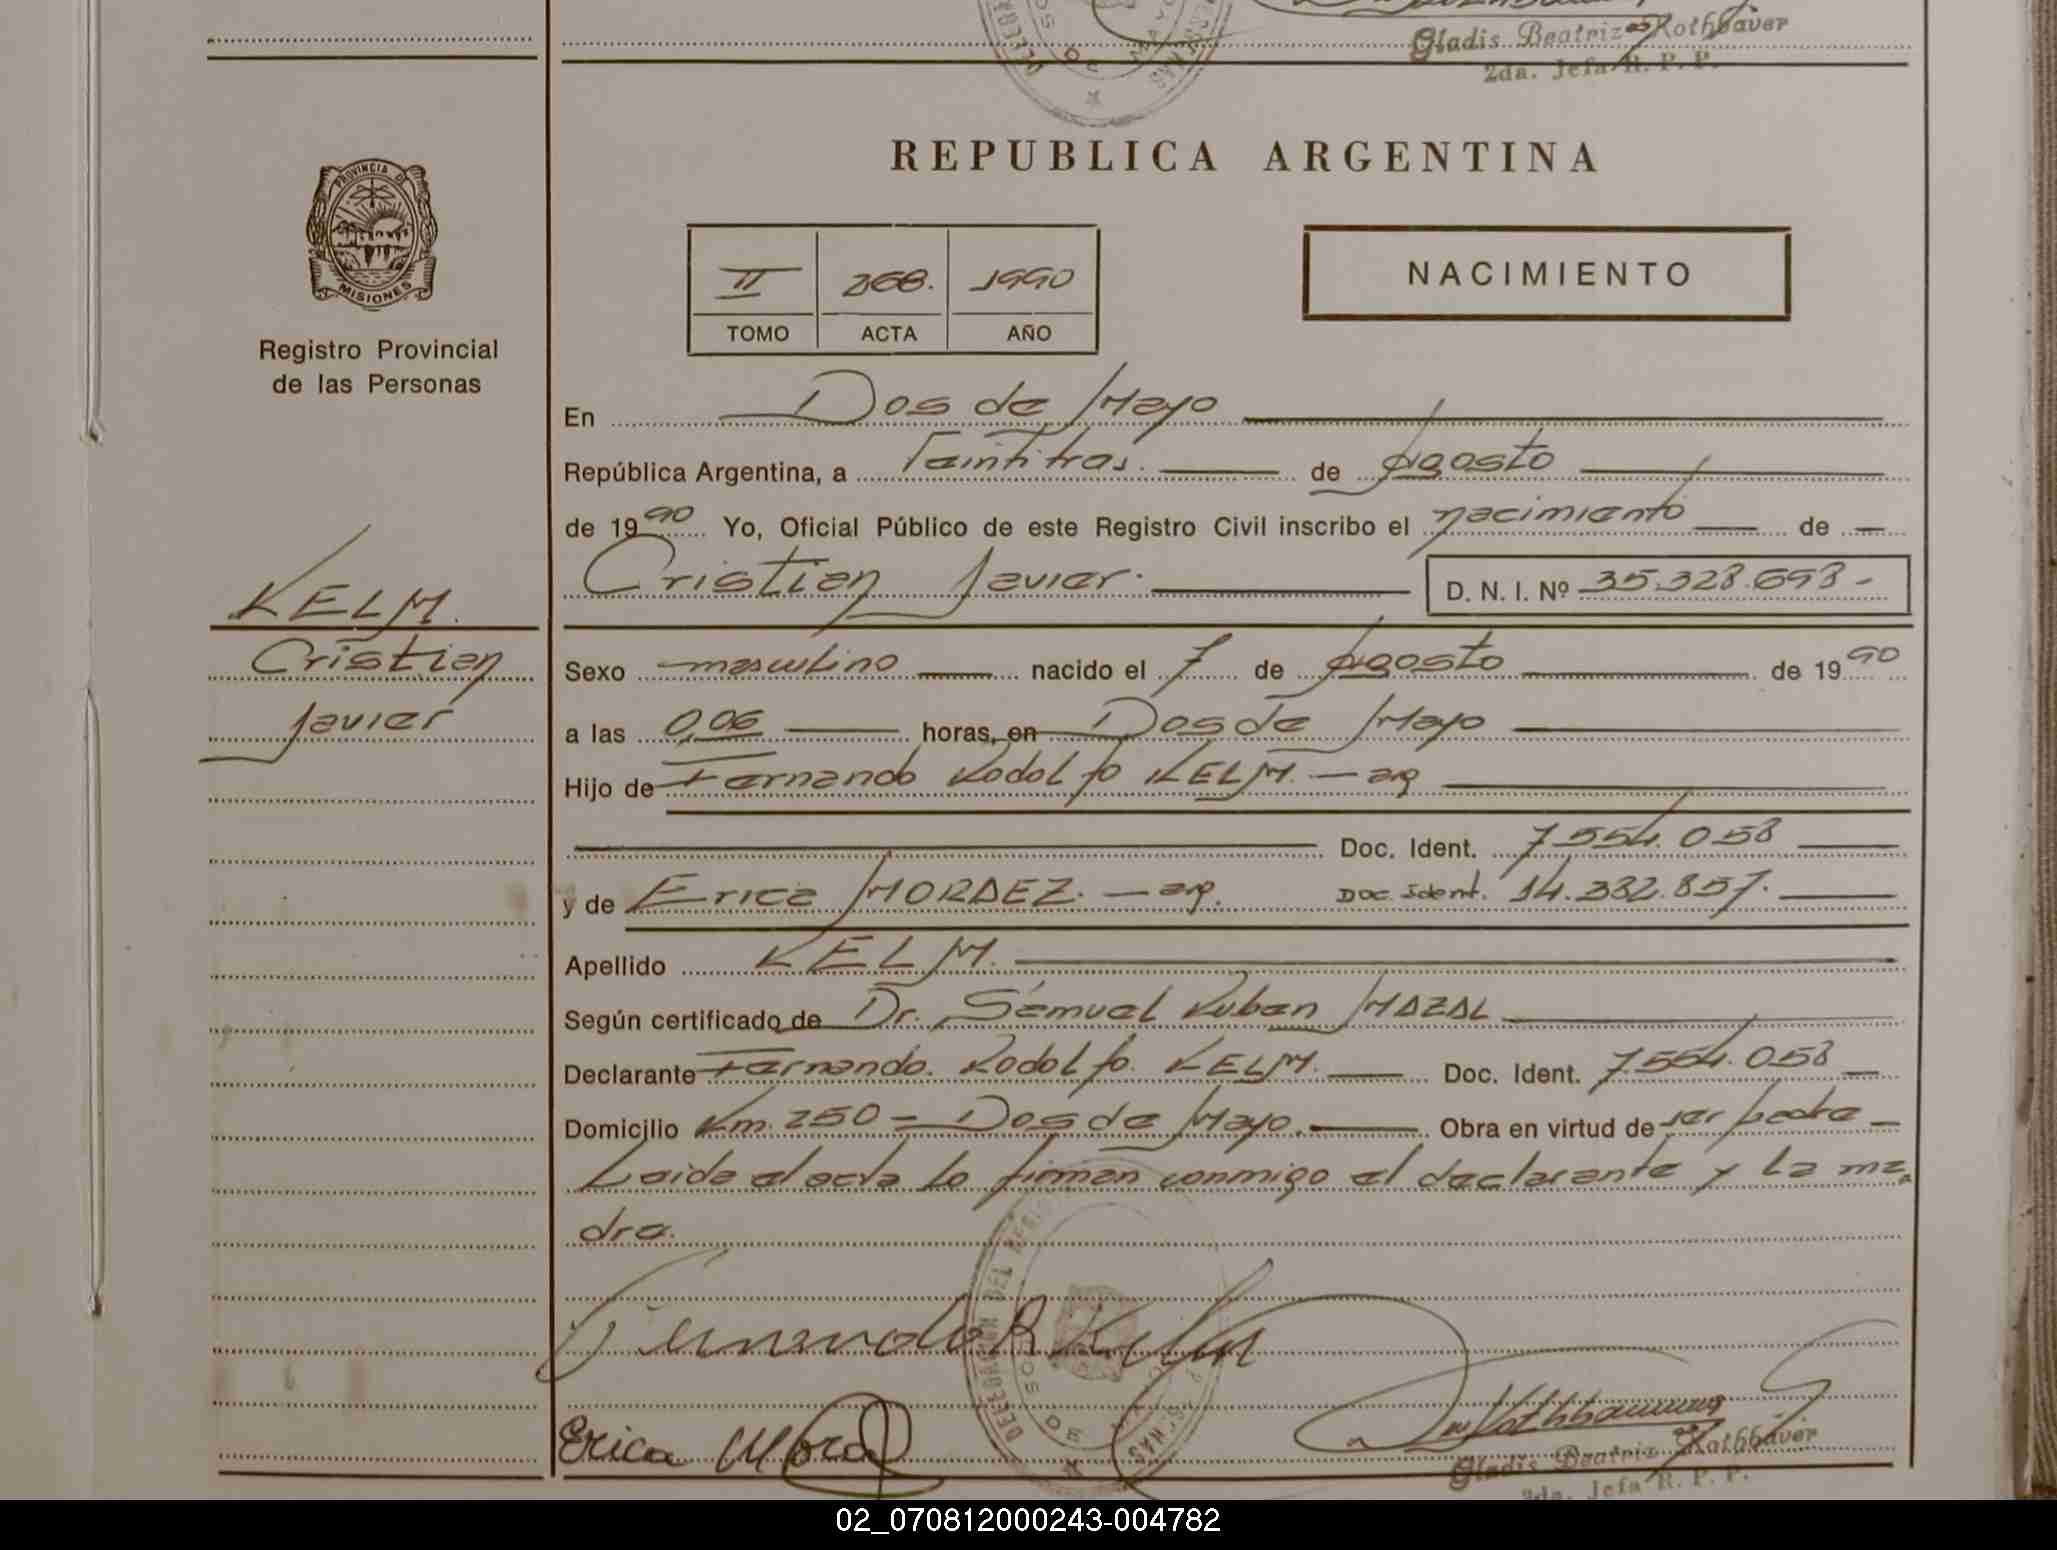 Gladis Beatriz Rothbaver
2da. Jefa R. P. P.
REPUBLICA ARGENTINA
PROVINCIA DE
MISIONES
Registro Provincial
de las Personas
II 268. 1990
TOMO ACTA AÑO
NACIMIENTO
En Dos de Mayo
República Argentina, a Teintitres. de Agosto
de 1990 Yo, Oficial Público de este Registro Civil inscribo el nacimiento de
Cristian Javier. D. N. I. Nº 35.328.693.-
KELM.
Cristian
Javier
Sexo masculino nacido el 7 de Agosto de 1990
a las 0,06 horas, en Dos de Mayo
Hijo de Fernando Rodolfo KELM. - arg
Doc. Ident. 7.554.058
y de Erica MORAEZ. - arg. Doc. Ident. 14.332.857.
Apellido KELM.
Según certificado de Dr. Samuel Ruben MAZAL
Declarante Fernando. Rodolfo. KELM. Doc. Ident. 7.554.058
Domicilio Km. 250 - Dos de Mayo. Obra en virtud de ser padre
Leida el acta lo firman conmigo el declarante y la ma
dre.
Fernando R Kelm
Erica Mora
Gladis Beatriz Rothbaver
2da. Jefa R. P. P.
02_070812000243-004782